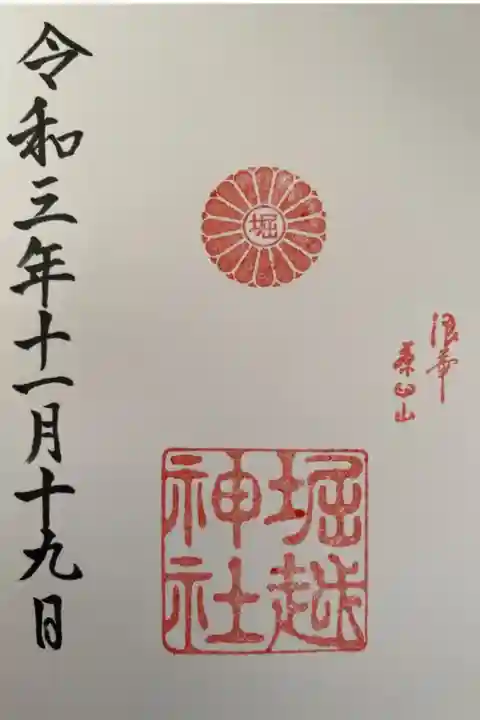 浪華
茶臼山
堀
堀越
神社
令和三年十一月十九日